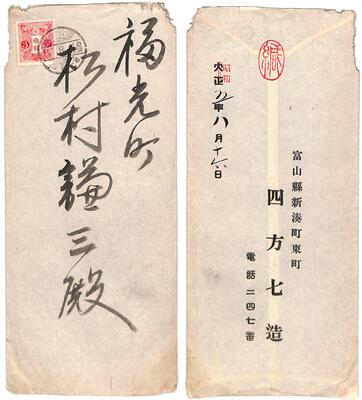 福光町
松村謙三殿
3 Sn
昭和
大正九年八月十六日
富山縣新湊町東町
四方七造
電話二四七番